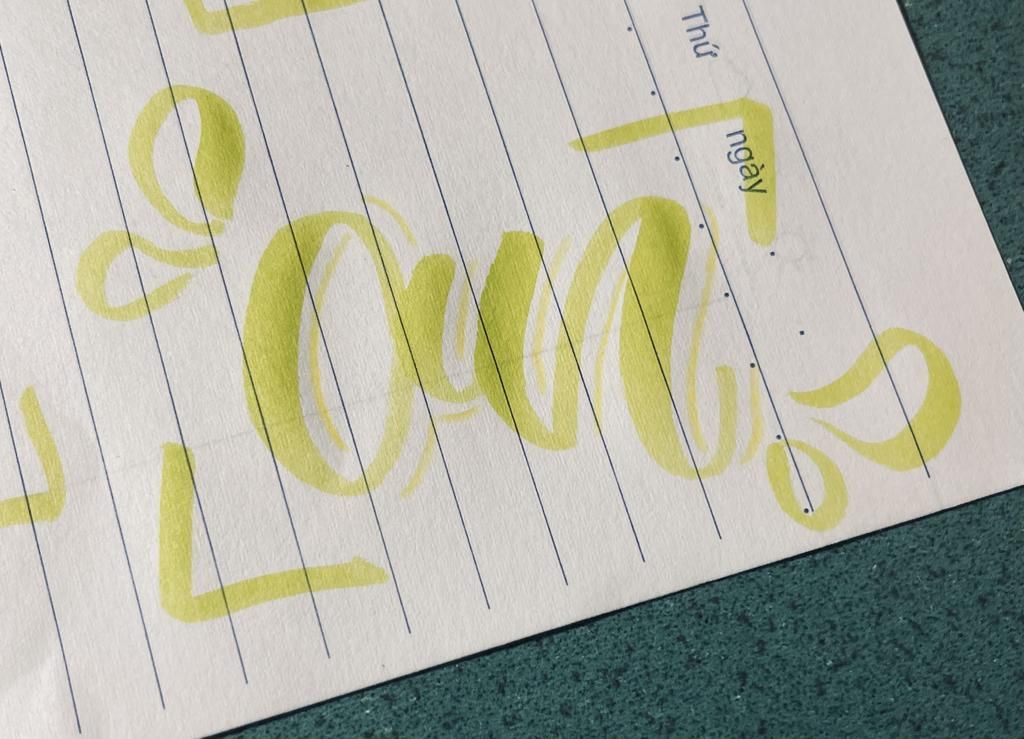 Thứ ngày
Own